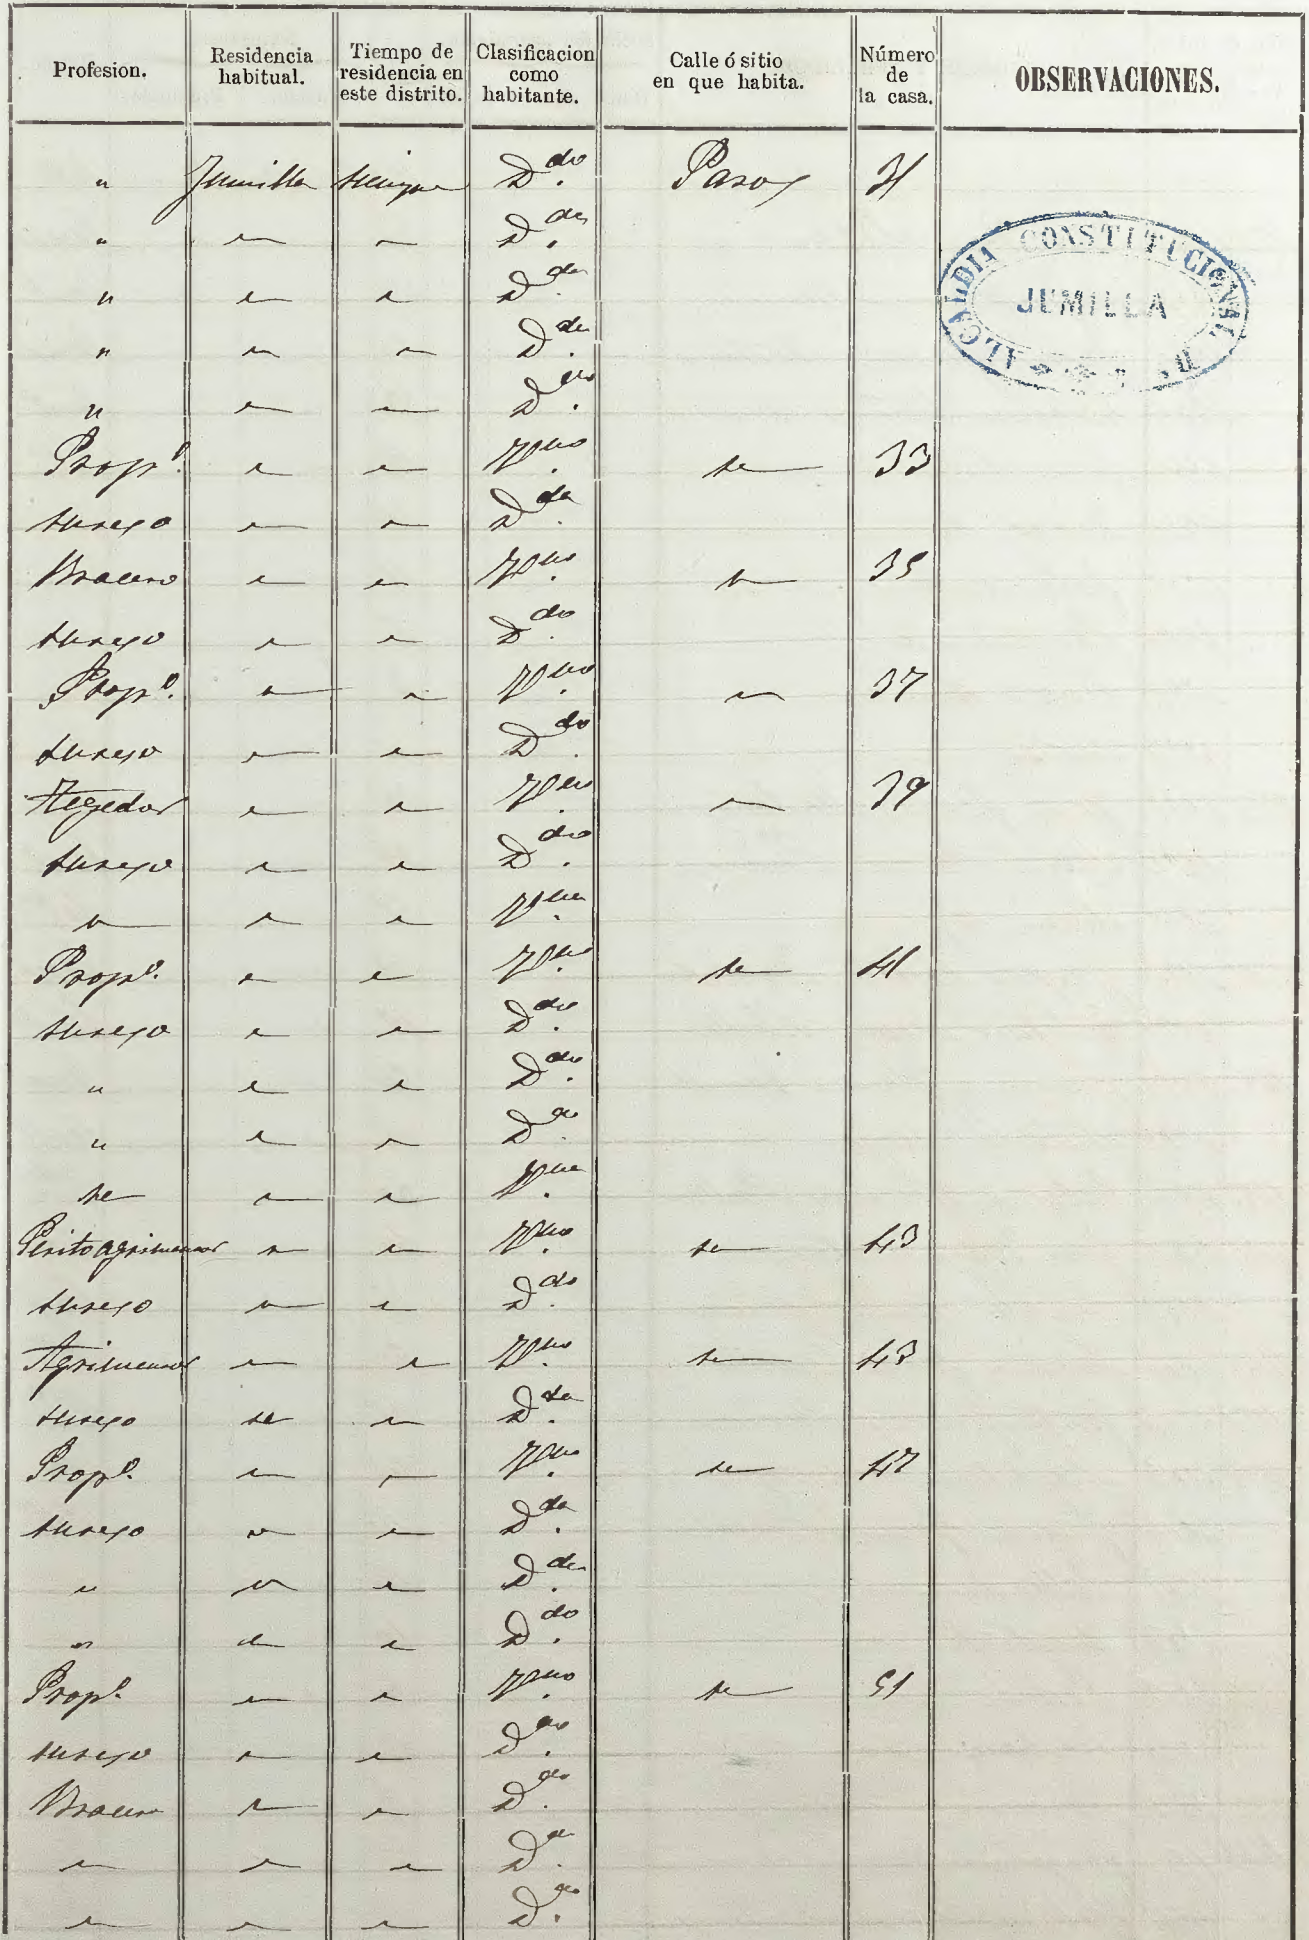 Profesion. Residencia habitual. Tiempo de residencia en este distrito. Clasificacion como habitante. Calle ó sitio en que habita. Número de la casa. OBSERVACIONES.
" Jumilla siempre D.do Pasos 31
" — — D.da
" — — D.da
" — — D.da
" — — D.do
Prop.o — — V.no se 33
su sexo — — D.da
Bracero — — V.no — 35
su sexo — — D.do
Prop.o — — V.no — 37
su sexo — — D.do
Tegedor — — V.no — 39
su sexo — — D.do
— — — V.na
Prop.o — — V.no se 41
su sexo — — D.do
" — — D.do
" — — D.do
se — — V.na
Perito agrimensor — — V.no se 43
su sexo — — D.do
Agrimensor — — V.no se 43
su sexo se — D.da
Prop.o — — V.no se 47
su sexo — — D.da
" — — D.da
" — — D.do
Prop.o — — V.no se 51
su sexo — — D.do
Bracero — — D.do
— — — D.do
— — — D.do
ALCALDIA CONSTITUCIONAL D
JUMILLA